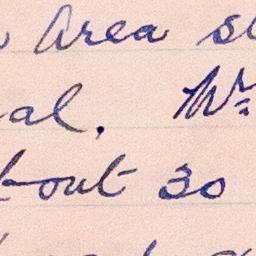 Area
al. Mr
out 30